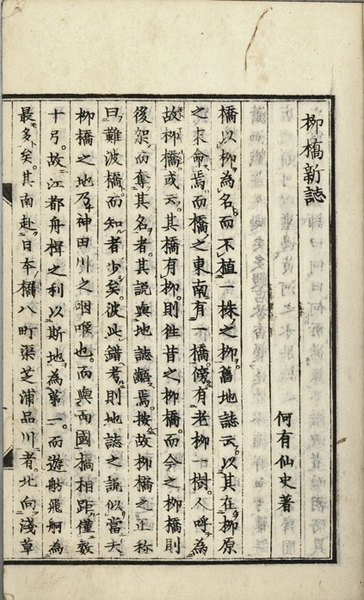 柳橋新誌
何有仙史著
橋以柳為名而不植一株之柳。舊地誌云。以其在柳原
之末命焉。而橋之東南有一橋傍有老柳一樹。人呼為
故柳橋。或云。其橋有柳。則往昔之柳橋。而今之柳橋則
後架而奪其名者。其說與地誌焉。按故柳橋之正称
曰難波橋。而知者少矣。彼此錯考。則地誌之說似當。夫
柳橋之地。乃神田川之咽喉也。而與両國橋相距僅數
十弓。故江都舟楫之利以斯地為第一。而遊舫飛舸為
最多矣。其南赴日本橋八町渠芝浦品川者。北向淺草